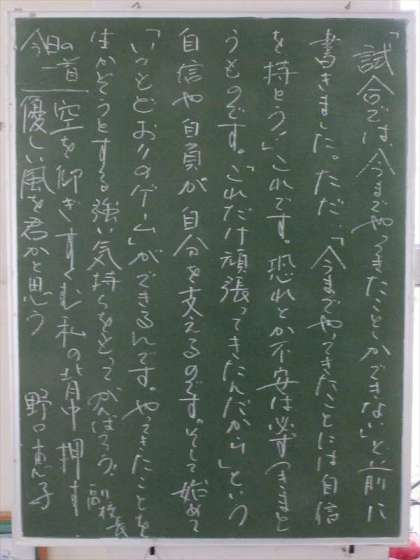 「試合では今までやってきたことしかできない」と前に
書きました。ただ…「今までやってきたことには自信
を持とう！」これです。恐れとか不安は必ずつきまと
うものです。「これだけ頑張ってきたんだから」という
自信や自負が自分を支えるのです。そして始めて
「いつもどおりのゲーム」ができるんです。やってきたことを
生かそうとする強い気持ちをもってがんばろう。副校長
今日の一首 空を仰ぎすくむ私の背中押す
優しい風を君かと思う 野口恵子